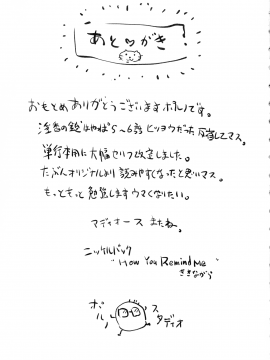 あと♡がき
おもとめありがとうございますポルノです。
注番の銃はやっぱ5〜6話ヒツヨウだった反省してマス。
単行本用に大幅セルフ改立しました。
たぶんオリジナルより読みやすくなったと思いマス。
もっともっと勉強しますウマくなりたい。
マディオース またね。
ニッケルバック
"How You Remind Me"
ききながら
ポルノ
スタディオ